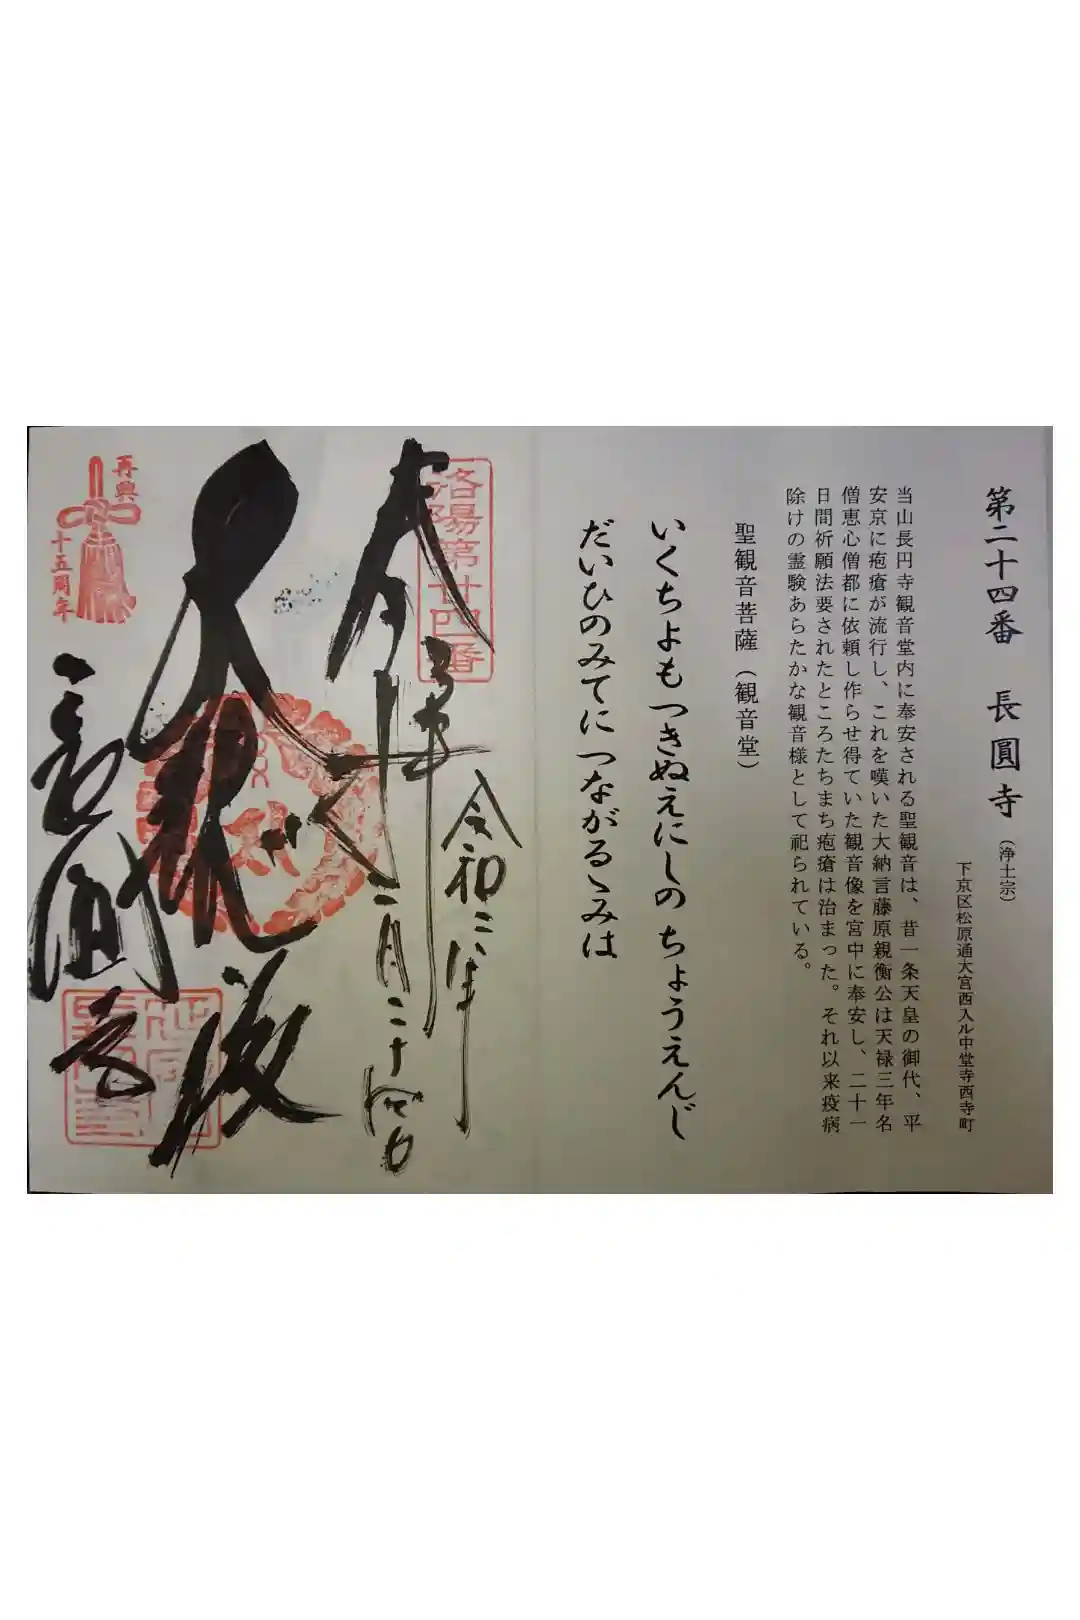 第二十四番 長圓寺（浄土宗）
下京区松原通大宮西入ル中堂寺西寺町
当山長円寺観音堂内に奉安される聖観音は、昔一条天皇の御代、平
安京に疱瘡が流行し、これを嘆いた大納言藤原親衡公は天禄三年名
僧恵心僧都に依頼し作らせ得ていた観音像を宮中に奉安し、二十一
日間祈願法要されたところたちまち疱瘡は治まった。それ以来疫病
除けの霊験あらたかな観音様として祀られている。
聖観音菩薩（観音堂）
いくちよもつきぬえにしの ちょうえんじ
だいひのみてに つながるゝみは
洛陽第廿四番
奉拝
令和二年
一月二十
大悲殿
長圓寺
再興
十五周年